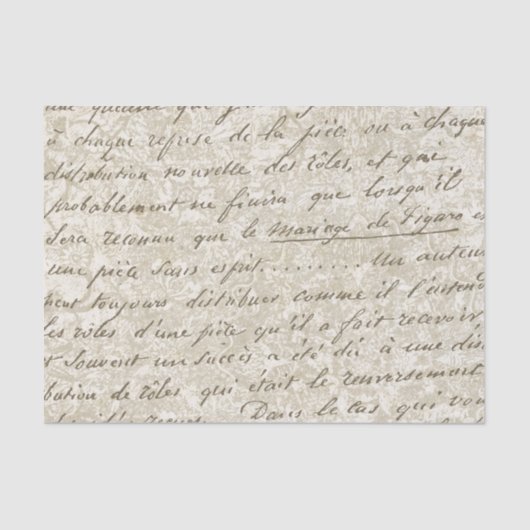 une que
à chaque reprise de la pièce ou à chaque
distribution nouvelle des rôles, et qui
probablement ne finira que lorsqu'il
sera reconnu que le Mariage de Figaro
une pièce sans esprit......... Un auteur
peut toujours distribuer comme il l'entend
les rôles d'une pièce qu'il a fait recevoir
et souvent un succès a été dû à une dis
bution de rôles qui était le renversement
Dans le cas qui vou